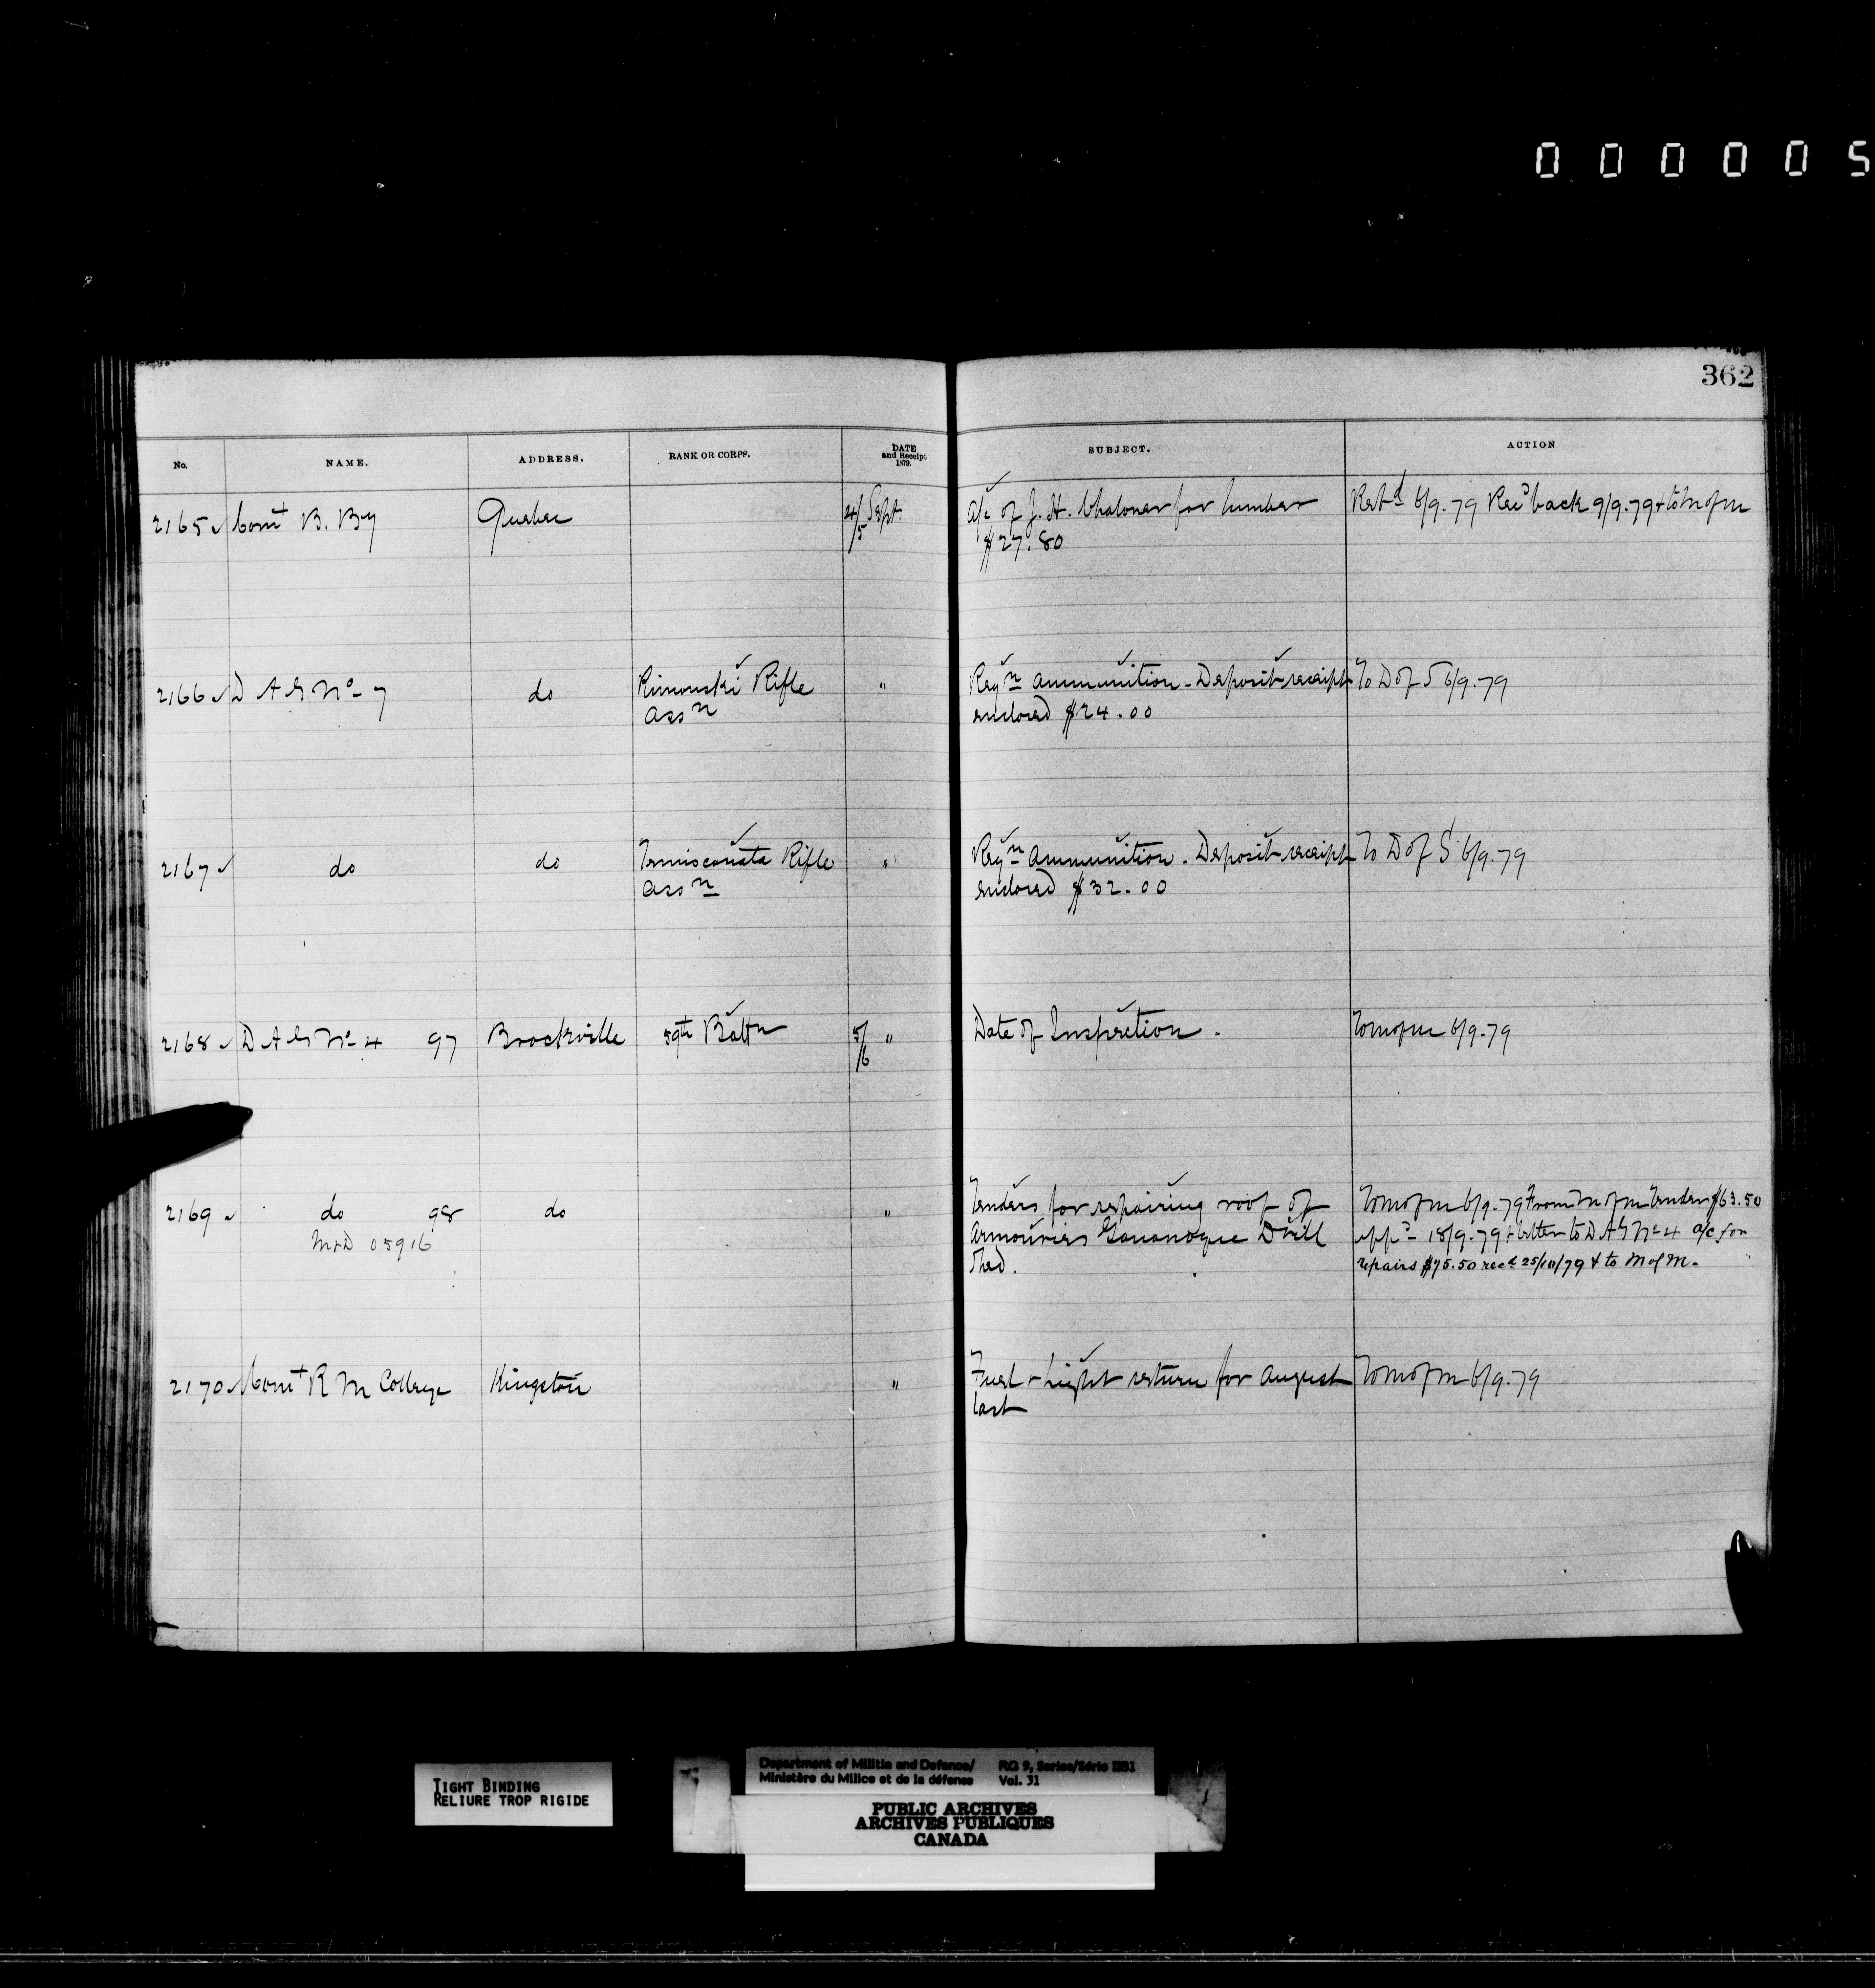 0 0 0 0 0 5
362
No. NAME. ADDRESS. RANK OR CORPS. DATE and Receipt 1879. SUBJECT. ACTION
2165 Comt B. By Quebec 4/5 Sept. a/c of J. H. Chaloner for lumber Retd 6/9.79 Recd back 9/9.79 & to M of M
$27.80
2166 D A G No 7 do Rimouski Rifle " Reqn ammunition - Deposit receipt To D of S 6/9.79
assn enclosed $24.00
2167 do do Temiscouata Rifle " Reqn ammunition. Deposit receipt To D of S 6/9.79
assn enclosed $32.00
2168 D A G No 4 97 Brockville 59th Battn 5/6 " Date of Inspection. To M of M 6/9.79
2169 do 98 do " Tenders for repairing roof of To M of M 6/9.79 From M of M Tender $63.50
M&D 05916 armouries Gananoque Drill appd 18/9.79 & letter to D A G No 4 a/c for
Shed. repairs $75.50 recd 25/10/79 & to M of M.
2170 Comt R M College Kingston " Fuel & light return for August To M of M 6/9.79
last
TIGHT BINDING
RELIURE TROP RIGIDE
Department of Militia and Defence/ RG 9, Series/Série IIB1
Ministère du Milice et de la défense Vol. 31
PUBLIC ARCHIVES
ARCHIVES PUBLIQUES
CANADA